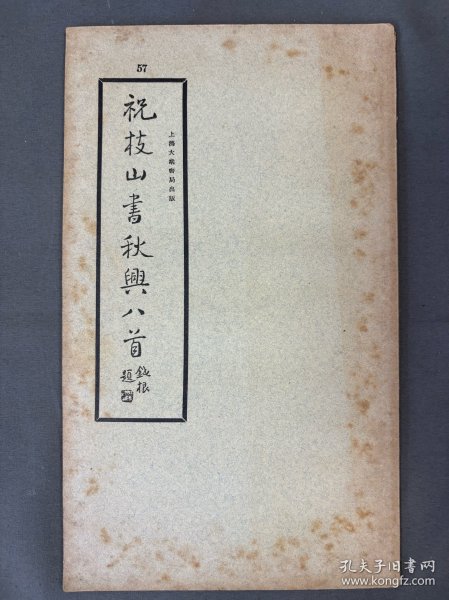 57
上海大众书局出版
祝枝山書秋興八首
鐵根
題
孔夫子旧书网
www.kongfz.com